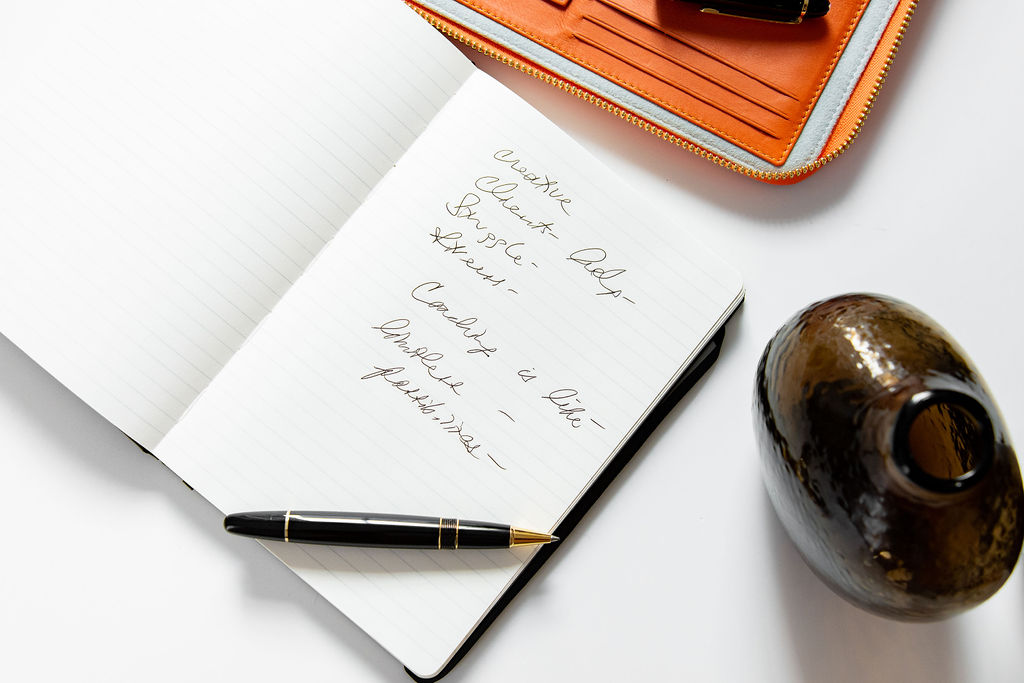 Creative
Clients - help -
Struggle -
Stress -
Coaching is like -
limitless -
possibilities -